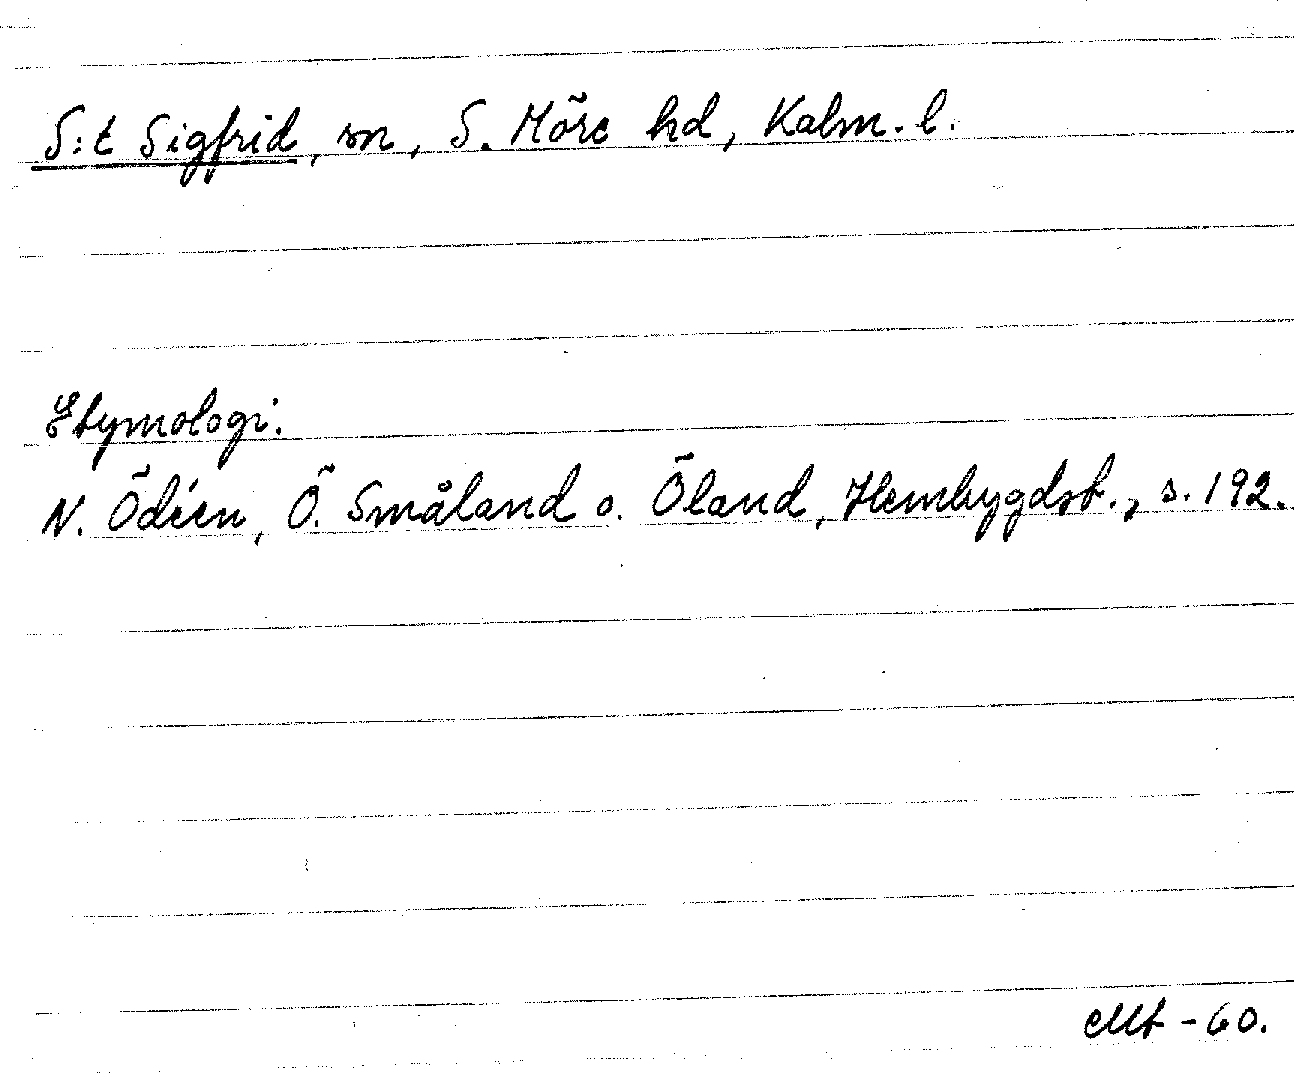 S:t Sigfrid, sn, S. Möre hd, Kalm. l.
Etymologi.
N. Ödéen, Ö. Småland o. Öland, Hembygdsb., s. 192.
-60.